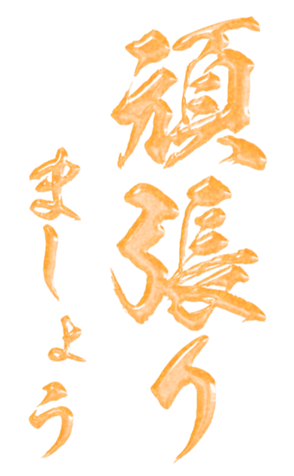 頑張り
ましょう